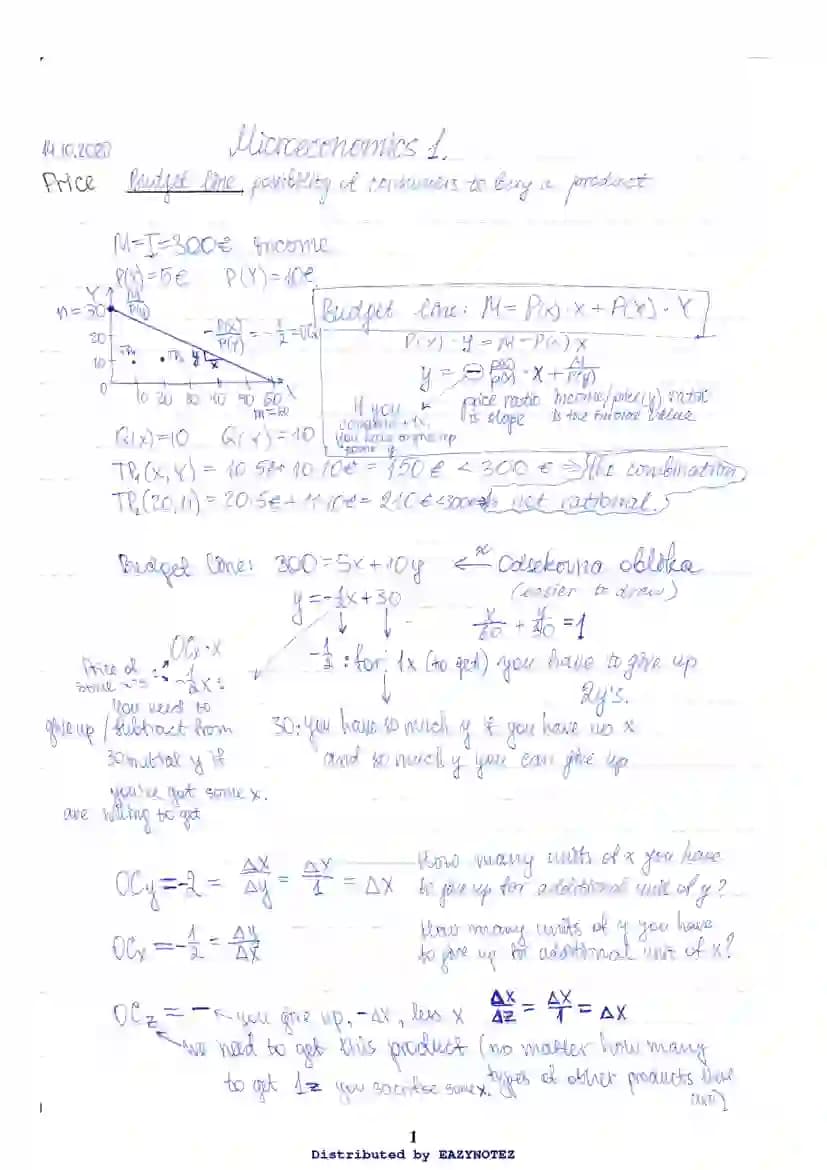 14.10.2020 Microeconomics 1.
Price Budget line possibility of consumers to buy a product
M=I=300€ income
P(X)=5€ P(Y)=10€
Y M/P(Y)
n=30
20
10 TP₁ TP₂ y x
-P(X)/P(Y) = -1/2 =
0 10 20 30 40 50 60 X
m=60
Budget line: M=P(x)·x+P(Y)·Y
P(Y)·y=M-P(x)x
y = - P(x)/P(y) · x + M/P(Y)
price ratio is slope
income/price(y) ratio is the initial value
If you
+1x,
you have to give up
some y
Q(x)=10 Q(Y)=10
TP₁(X,Y) = 10·5€+10·10€ = 150€ < 300€ ⇒ The combination
TP₂(20,11) = 20·5€+11·10€ = 210€<300€ is not rational.
Budget line: 300=5x+10y ← Odsekovna oblika
(easier to draw)
y=-1/2x+30
x/60 + y/30 = 1
OCx·x
Price of some x's: -1/2x:
-1/2: for 1x (to get) you have to give up
2y's.
you need to
give up / subtract from
30 initial y if
you've got some x.
are willing to get
30: you have so much y if you have no x
and so much y you can give up
OCy=-2 = ΔX/Δy = ΔX/1 = ΔX
How many units of x you have
to give up for additional unit of y?
OCx=-1/2 = Δy/ΔX
How many units of y you have
to give up for additional unit of x?
OCz = - ← you give up, -Δx, less x ΔX/ΔZ = ΔX/1 = ΔX
we need to get this product (no matter how many
types of other products there
to get 1z you sacrifice some x.
1
Distributed by EAZYNOTEZ